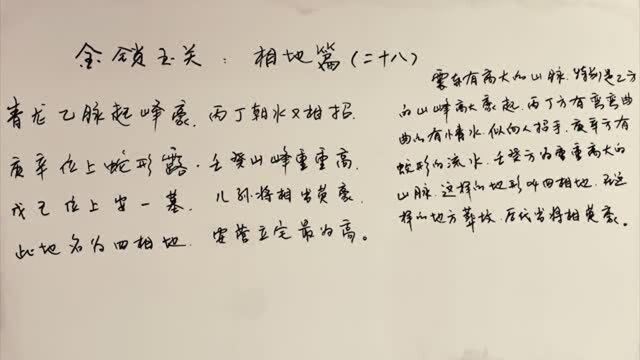 金锁玉关：相地篇（二十八）
青龙乙脉起峰豪，丙丁朝水又相招，
庚辛位上蛇形露，壬癸山峰重重高，
戊己位上安一墓，儿孙将相出英豪，
此地名为四相地，安营立宅最为高。
震东有高大的山脉，特别是乙方
的山峰高大豪起，丙丁方有弯弯曲
曲的有情水，似向人招手，庚辛方有
蛇形的流水，壬癸方有重重高大的
山脉，这样的地形叫四相地，在这
样的地方葬坟，历代出将相英豪。